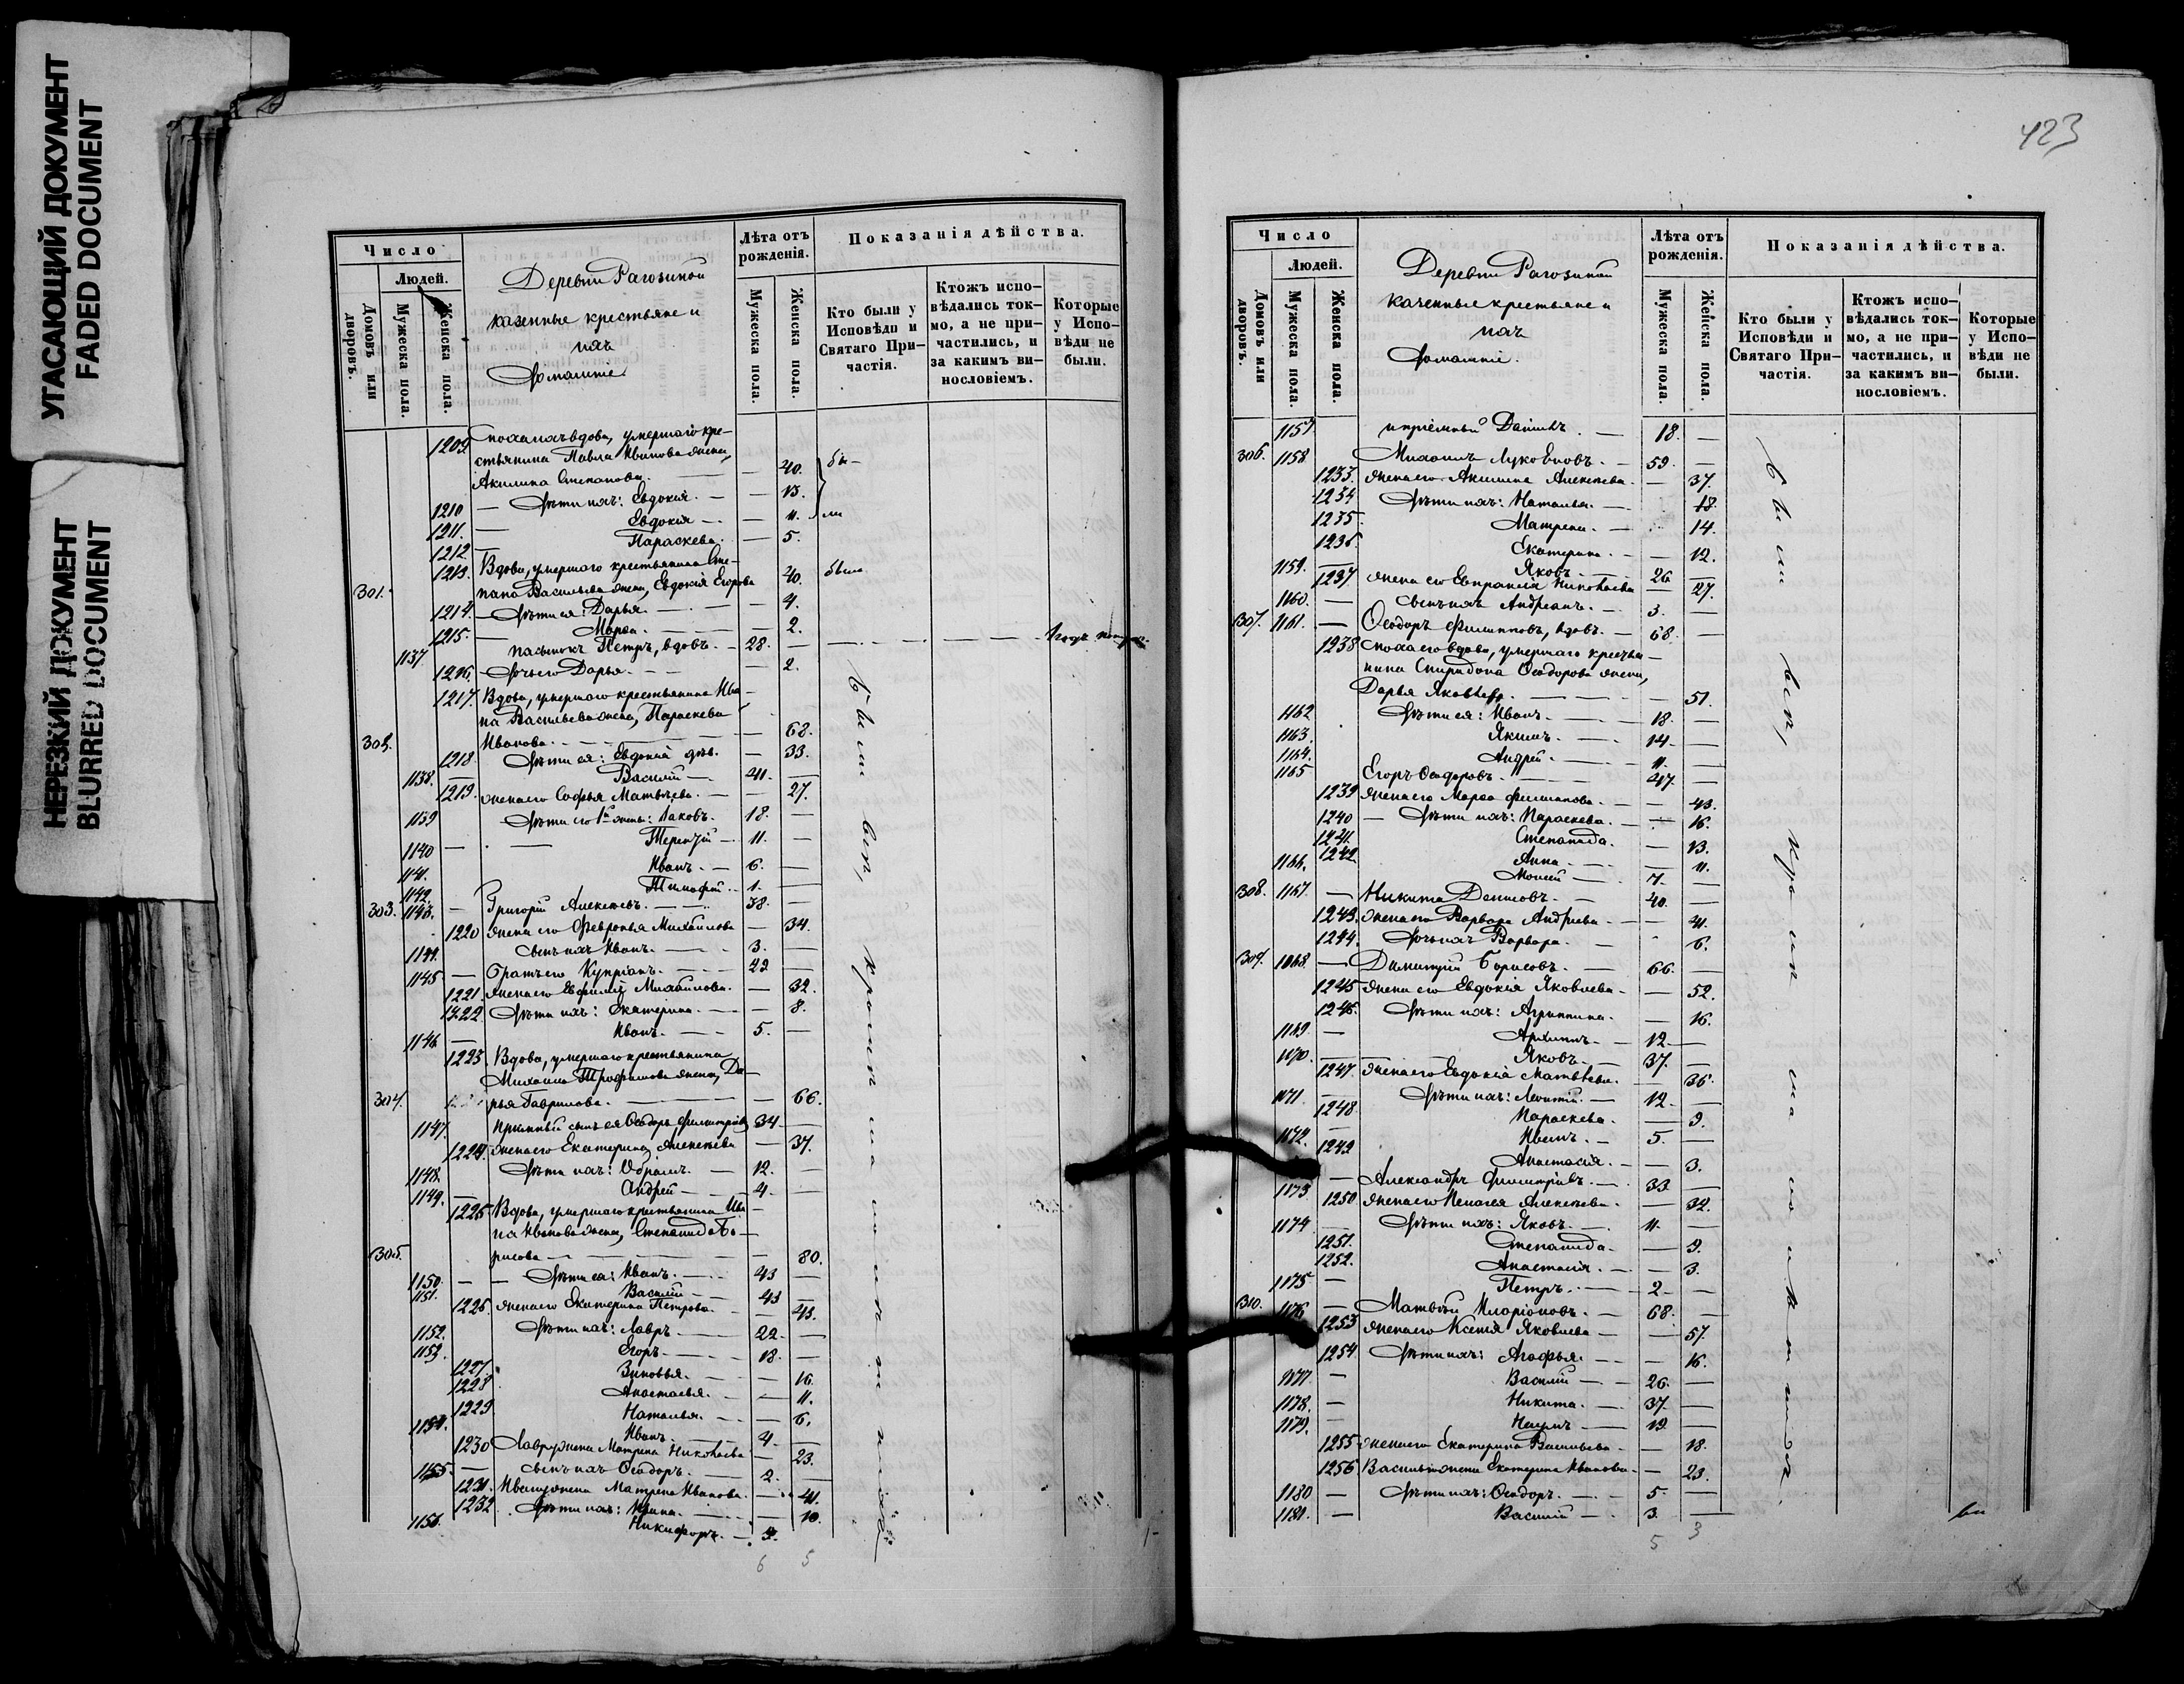 УГАСАЮЩИЙ ДОКУМЕНТ
FADED DOCUMENT
НЕРЕЗКИЙ ДОКУМЕНТ
BLURRED DOCUMENT
Число
Людей.
Домовъ или дворовъ.
Мужеска пола.
Женска пола.
Деревни Рагозиной
казенные крестьяне и
ихъ
домашніе
Лѣта отъ рожденія.
Мужеска пола.
Женска пола.
Показанія дѣйства.
Кто были у Исповѣди и Святаго Причастія.
Ктожъ исповѣдались токмо, а не причастились, и за какимъ винословіемъ.
Которые у Исповѣди не были.
1209 Сноха ихъ вдова, умершаго кре-
стьянина Павла Иванова жена,
Акилина Степанова. — 40. бы-
1210 — Дѣти ихъ: Евдокія. — 13.
1211. — Евдокія — 11. ли
1212. Параскева. — 5.
1213. Вдова, умершаго крестьянина Сте-
301. пана Васильева жена, Евдокія Егорова 40. была
1214. — Дѣти ея: Дарья. — 4.
1215. Марѳа. — 2.
1137. пасынокъ Петръ, вдовъ. — 28.
1216. — Дочь его Дарья. — 2.
1217. Вдова, умершаго крестьянина Ива-
на Васильева жена, Параскева
302. Иванова. — 68.
1218. Дѣти ея: Евдокія дѣв. — 33.
1138. Василій — 41.
1219. жена его Софья Матвѣева. — 27.
1139 Дѣти его 1й жены: Іаковъ. 18.
1140 — Терентій — 11.
1141. Иванъ. — 6.
1142. Тимофей. — 1.
303. 1143. — Григорій Алексѣевъ. — 38.
1220 жена его Февронья Михайлова — 34.
1144. сынъ ихъ Иванъ. — 3.
1145 — Братъ его Купріанъ. — 29
1221. жена его Евфимія Михайлова. — 32.
1222 Дѣти ихъ: Екатерина. — 8.
1146 — Иванъ. — 5.
1223. Вдова, умершаго крестьянина
Михаила Трофимова жена, Да-
304. рья Гаврилова. — 66.
1147. Пріемный сынъ ея Ѳеодоръ Димитріевъ 34
1224. жена его Екатерина Алексѣева — 37.
1148. Дѣти ихъ: Абрамъ. — 12.
1149. — Андрей — 4.
1225 Вдова, умершаго крестьянина Ива-
на Иванова жена, Степанида Бо-
305. рисова — 80.
1150. — Дѣти ея: Иванъ. — 43
1151. Василій — 43
1226. жена его Екатерина Петрова. — 43.
1152. Дѣти ихъ: Лавръ. — 22.
1153. Егоръ. — 18.
1227. Зиновья. — 16.
1228 Анастасья. — 11.
1229 Наталья. — 6.
1154. Иванъ. — 4.
1230 Лавра жена Матрена Николаева — 23.
1155. — сынъ ихъ Ѳеодоръ. — 2.
1231. Ивана жена Матрена Иванова. — 41.
1232 Дѣти ихъ: Ирина. — 10.
1156. Никифоръ. — 3.
6 5
423
Число
Людей.
Домовъ или дворовъ.
Мужеска пола.
Женска пола.
Деревни Рагозиной
казенные крестьяне и
ихъ
домашніе.
Лѣта отъ рожденія.
Мужеска пола.
Женска пола.
Показанія дѣйства.
Кто были у Исповѣди и Святаго Причастія.
Ктожъ исповѣдались токмо, а не причастились, и за какимъ винословіемъ.
Которые у Исповѣди не были.
1157 пріемный Даніилъ. — 18.
306. 1158. Михаилъ Луковновъ. — 59.
1233. жена его Акилина Алексѣева. — 37.
1234 Дѣти ихъ: Наталья. — 18.
1235. Матрена. — 14.
1236. Екатерина. — 12.
1159. — Яковъ. — 26
1237 жена его Евпраксія Николаева — 27.
1160. — сынъ ихъ Андреанъ. — 3.
307. 1161. — Ѳеодоръ Филипповъ, вдовъ. — 68.
1238 Сноха его вдова, умершаго крестья-
нина Спиридона Ѳеодорова жена,
Дарья Яковлева. — 51.
1162 Дѣти ея: Иванъ. — 18.
1163. Якимъ. — 14.
1164. Андрей. — 11.
1165 Егоръ Ѳеодоровъ. — 47.
1239 жена его Марѳа Филипова. — 43.
1240 — Дѣти ихъ: Параскева. — 16.
1241. Степанида. — 13.
1242 Анна. — 11.
1166. Моисей — 7.
308. 1167. — Никита Денисовъ. — 40.
1243. жена его Варвара Андреева — 41.
1244. Дочь ихъ Варвара. — 6.
309. 1168. — Димитрій Борисовъ. — 66.
1245 жена его Евдокія Яковлева — 52.
1246. Дѣти ихъ: Агриппина. — 16.
1169 — Архипъ. — 12
1170. — Яковъ. — 37.
1247. жена его Евдокія Матвѣева. — 36.
1171 Дѣти ихъ: Леонтій — 12
1248. Параскева. — 9.
1172. Иванъ. — 5.
1249 Анастасія. — 3.
1173 — Александръ Димитріевъ. — 33
1250 жена его Пелагея Алексѣева. — 32.
1174 — Дѣти ихъ: Яковъ. — 11.
1251. Степанида. — 9.
1252. Анастасія. — 3.
1175 — Петръ. — 2
310. 1176 — Матвѣй Иларіоновъ. — 68.
1253 жена его Ксенія Яковлева — 57.
1254 Дѣти ихъ: Агафья. — 16.
1177 — Василій — 26.
1178. — Никита. — 37.
1179. — Наумъ — 19.
1255 жена его Екатерина Васильева. — 18.
1256 Василья жена Екатерина Иванова. — 23.
1180 — Дѣти ихъ: Ѳеодоръ. — 5
1181. — Василій — 3.
5 3